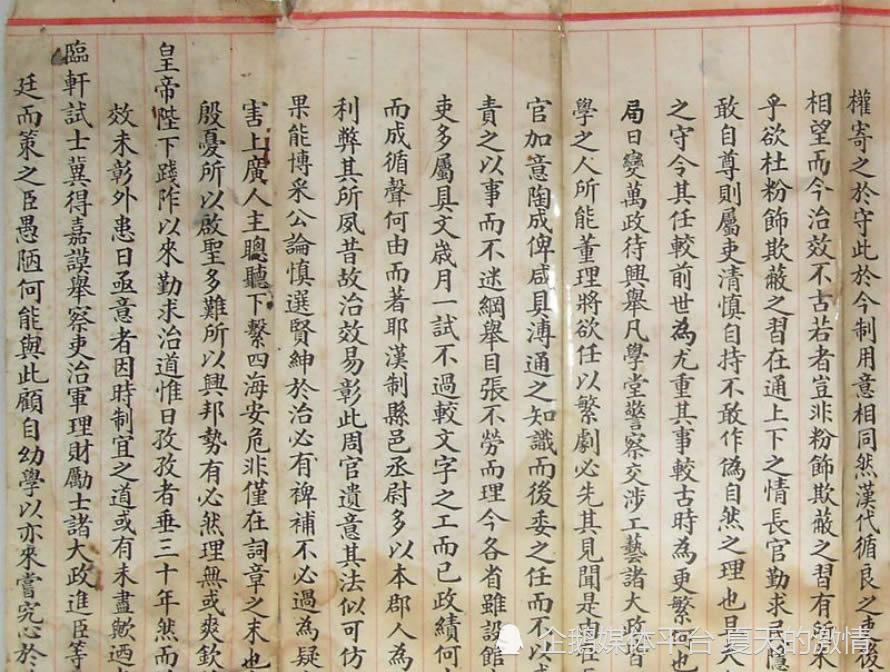 權寄之於守此於今制用意相同然漢代循良之吏後
相望而今治效不古若者豈非粉飾欺蔽之習有所
乎欲杜粉飾欺蔽之習在通上下之情長官勤求民隱
敢自尊則屬吏清慎自持不敢作偽自然之理也且
之守令其任較前世為尤重其事較古時為更繁何也
局日變萬政待興舉凡學堂警察交涉工藝諸大政皆
學之人所能董理將欲任以繁劇必先其見聞是
官加意陶成俾咸具溥通之知識而後委之任而不以
責之以事而不迷綱舉目張不勞而理今各省雖設館
吏多屬具文歲月一試不過較文字之工而已政績何
而成循聲何由而著耶漢制縣邑丞尉多以本郡人為
利弊其所夙昔故治效易彰此周官遺意其法似可仿
果能博采公論慎選賢紳於治必有裨補不必過為疑
害上廣人主聰聽下繫四海安危非僅在詞章之末也
殷憂所以啟聖多難所以興邦勢有必然理無或爽欽
皇帝陛下踐阼以來勤求治道惟日孜孜者垂三十年然而
效未彰外患日亟意者因時制宜之道或有未盡歟迺
臨軒試士冀得嘉謨舉察吏治軍理財勵士諸大政進臣等
廷而策之臣愚陋何能與此顧自幼學以亦來嘗究心於
企鹅媒体平台 夏天的激情